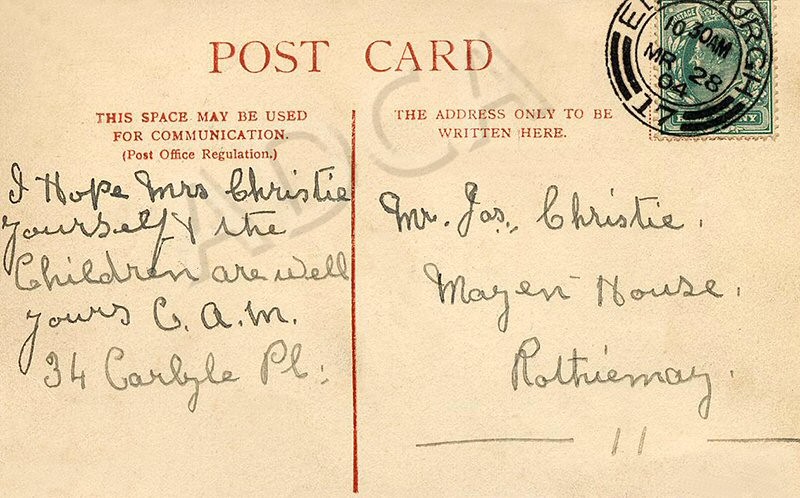 POST CARD
THIS SPACE MAY BE USED
FOR COMMUNICATION.
(Post Office Regulation.)
I Hope Mrs Christie
yourself & the
Children are well
yours C. A. M.
34 Carlyle Pl:
THE ADDRESS ONLY TO BE
WRITTEN HERE.
Mr. Jas. Christie.
Mayen House.
Rothiemay.
11
EDINBURGH
10.30AM
MR 28
04
17
ADCA